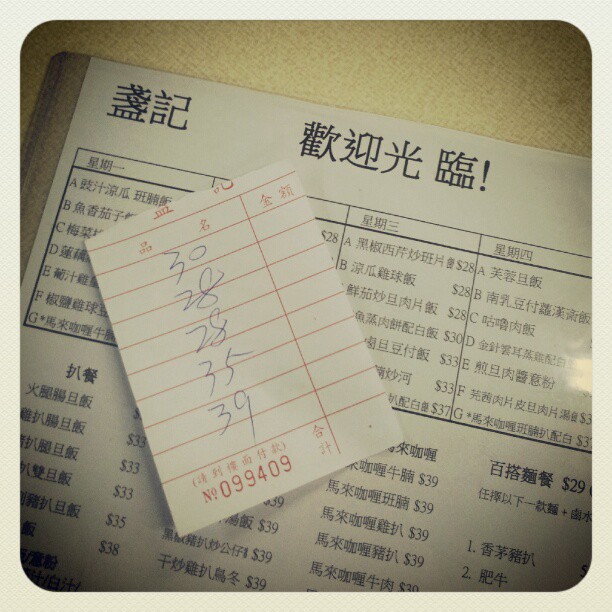 盞記
歡迎光臨!
星期一
A 豉汁涼瓜 班腩飯
B 魚香茄子
C 梅菜
D 蓮藕
E 葡汁雞
F 椒鹽雞球
G*馬來咖喱牛
星期三
$28 A 黑椒西芹炒班片 $28
B 涼瓜雞球飯 $28
鮮茄炒旦肉片飯 $28
魚蒸肉餅配白飯 $30
鹵旦豆付飯 $33
炒河 $33
扒配白 $37
星期四
A 芙蓉旦飯
B 南乳豆付蘿漢齋飯
C 咕嚕肉飯
D 金針雲耳蒸雞配白
E 煎旦肉醬意粉
F 芫茜肉片皮旦肉片湯
G*馬來咖喱班腩扒配白 $37
盞記
品名 金額
30
28
28
35
39
合計
(請到樓面付款)
№099409
扒餐
火腿腸旦飯 $33
雞扒腸旦飯 $33
豬扒腿旦飯 $33
扒雙旦飯 $33
豬扒旦飯 $35
飯 $38
湯飯 $39
黑椒豬扒炒公仔 $39
干炒雞扒烏冬 $39
馬來咖喱
馬來咖喱牛腩 $39
馬來咖喱班腩 $39
馬來咖喱雞扒 $39
馬來咖喱豬扒 $39
馬來咖喱牛肉 $39
百搭麵餐 $29
任擇以下一款麵 + 鹵水
1. 香茅豬扒
2. 肥牛